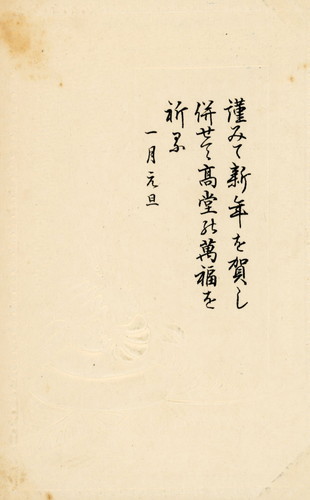 謹みて新年を賀し
併せて高堂の萬福を
祈る
一月元旦